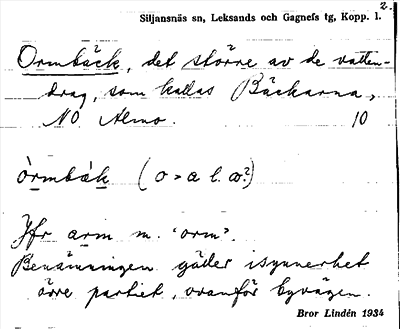 2.
Siljansnäs sn, Leksands och Gagnefs tg, Kopp. l.
Ormbäck, det större av de vatten-
drag, som kallas Bäckarna,
NO Almo. 10
òrmbàk (o > a l. æ?)
Jfr arm m. 'orm'.
Benämningen gäller isynnerhet
övre partiet, ovanför byvägen.
Bror Lindén 1934